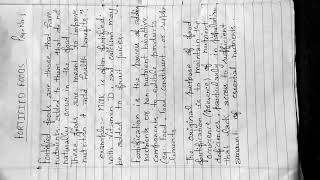 FORTIFIED FOODS Pg. No. 1
Fortified foods are those that have
nutrients added to them that do not
naturally occur in the food.
These foods are meant to improve
nutrition & add health benefits.
example, Milk is often fortified
with vitamin D, and calcium may
be added to fruit juices.
Fortification is the process of adding
nutrients or non nutrient bioactive
components to edible products
(eg food, food constituents, or supple
ments
The original purpose of food
fortification is to maintain the
deficiences, particularly in population
that lack access to sufficient
amounts of essential nutrients